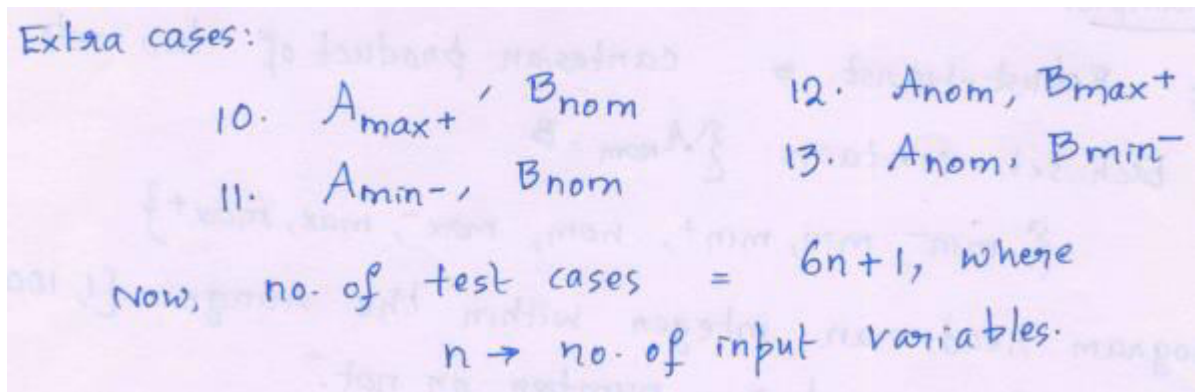 Extra cases:
10. Amax+, Bnom
11. Amin-, Bnom
12. Anom, Bmax+
13. Anom, Bmin-
Now, no. of test cases = 6n+1, where
n → no. of input variables.